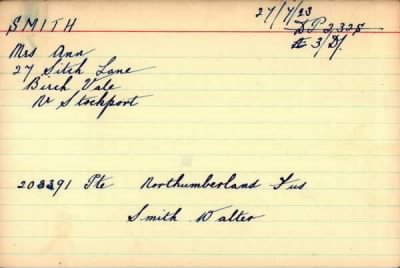 SMITH
27/7/23
DP 2325
3/D/.
Mrs Ann
27 Sitch Lane
Birch Vale
Nr Stockport
203391 Pte Northumberland Fus
Smith Walter